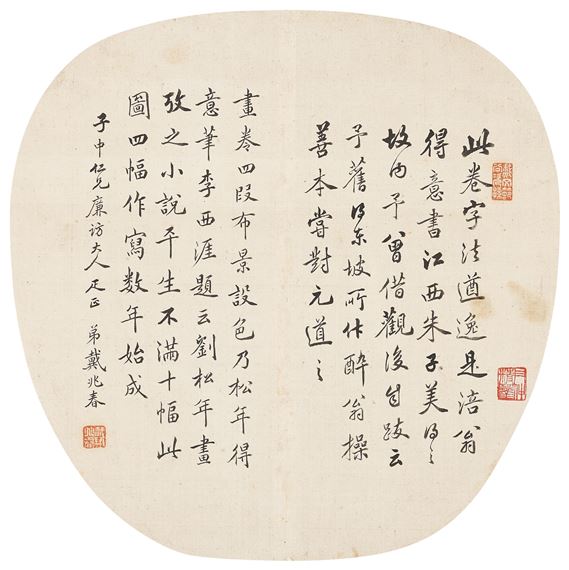 此卷字法遒逸是涪翁
得意書江西朱子美得之
故內予曾借觀後自跋云
予舊得東坡所作醉翁操
善本嘗對元道之
畫卷四段布景設色乃松年得
意筆李西涯題云劉松年畫
攷之小說平生不滿十幅此
圖四幅作寫數年始成
子中仁兄廉訪大人疋正 弟戴兆春